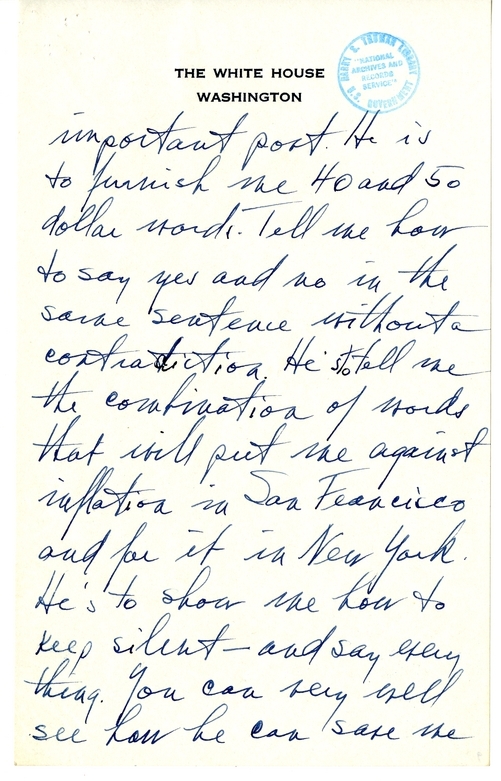 THE WHITE HOUSE
WASHINGTON
HARRY S. TRUMAN LIBRARY
"NATIONAL
ARCHIVES AND
RECORDS
SERVICE"
U.S. GOVERNMENT
important post. He is
to furnish me 40 and 50
dollar words. Tell me how
to say yes and no in the
same sentence without a
contradiction. He is to tell me
the combination of words
that will put me against
inflation in San Francisco
and for it in New York.
He's to show me how to
keep silent—and say every
thing. You can very well
see how he can save me